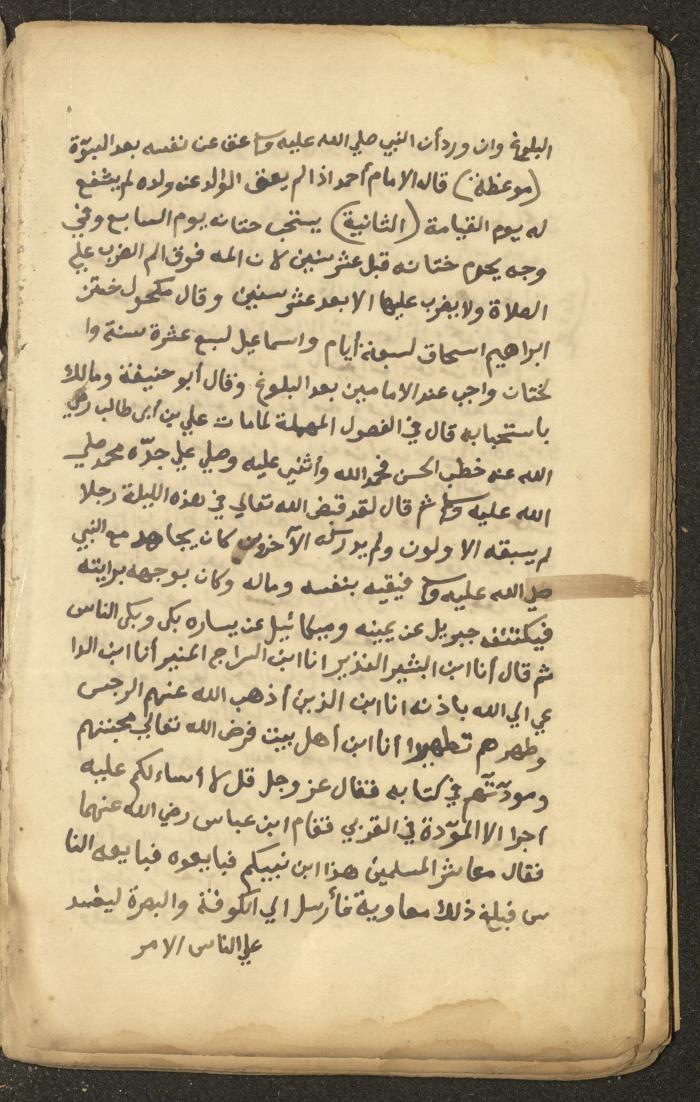 البلوغ وان ورد أن النبي صلي الله عليه وسلم عق عن نفسه بعد النبوّة
(موعظة) قال الامام أحمد اذا لم يعق الوالد عن ولده لم يشفع
له يوم القيامة (الثانية) يستحب ختانه يوم السابع وفي
وجه يحرم ختانه قبل عشر سنين لان المه فوق الم الضرب علي
الصلاة ولا يضرب عليها الا بعد عشر سنين وقال مكحول ختن
ابراهيم اسحاق لسبعة أيام واسماعيل لسبع عشرة سنة وا
لختان واجب عند الامامين بعد البلوغ وقال أبو حنيفة ومالك
باستحبابه قال في الفصول المهملة لما مات علي بن أبي طالب رضي
الله عنه خطب الحسن فحمد الله وأثني عليه وصلي علي جدّه محمد صلي
الله عليه وسلم ثم قال لقد قبض الله تعالي في هذه الليلة رجلا
لم يسبقه الاولون ولم يدركه الآخرون كان يجاهد مع النبي
صلي الله عليه وسلم فيقيه بنفسه وماله وكان يوجهه برايته
فيكتنفه جبريل عن يمينه وميكائيل عن يساره بكي وبكي الناس
ثم قال أنا ابن البشير النذير انا ابن السراج المنير أنا ابن الدا
عي الي الله باذنه انا ابن الذين أذهب الله عنهم الرجس
وطهرهم تطهيرا أنا ابن أهل بيت فرض الله تعالي محبتهم
ومودّتهم في كتابه فقال عز وجل قل لا أسالكم عليه
اجرا الا الموّدة في القربي فقام ابن عباس رضي الله عنهما
فقال معاشر المسلمين هذا ابن نبيكم فبايعوه فبايعه النا
س فبلغ ذلك معاوية فأرسل الي الكوفة والبصرة ليفسد
علي الناس الامر